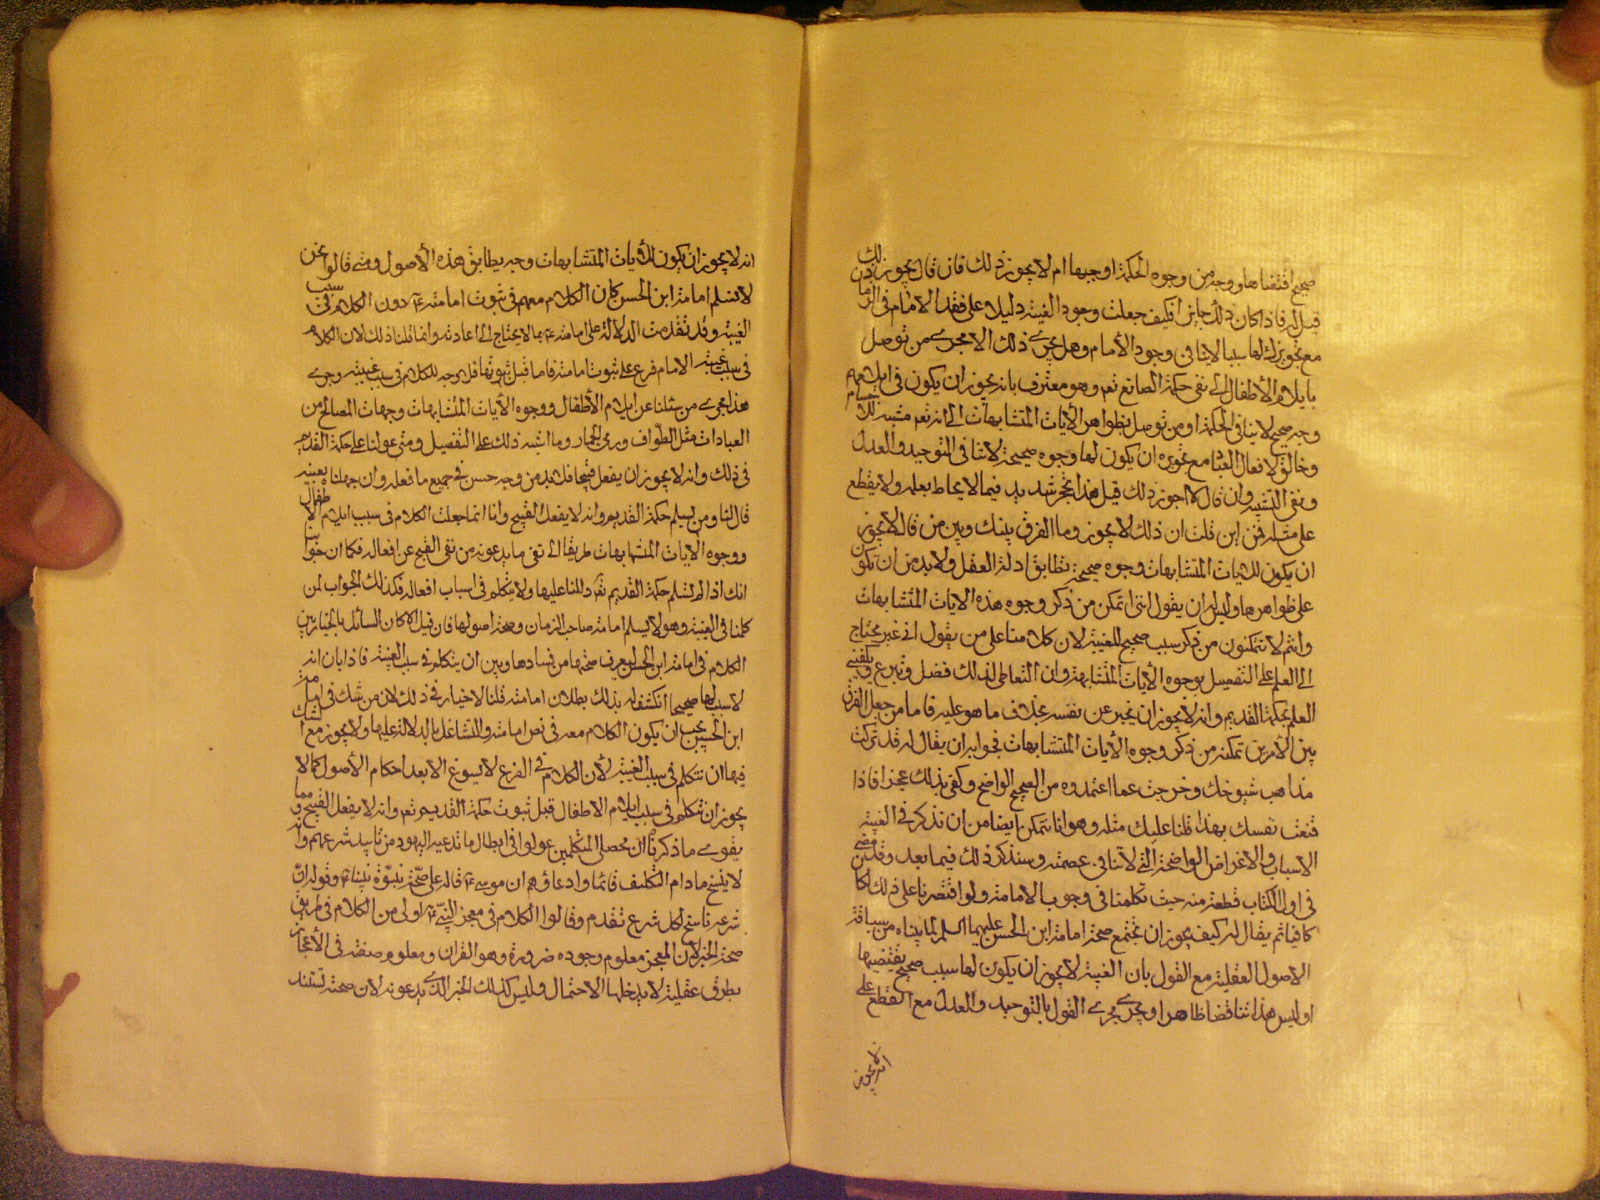 صحيح اقتضاها ووجه من وجوه الحكمة اوجبها ام لا يجوز ذلك فان قال يجوز ذلك
قيل له فاذا كان ذلك جايزا فكيف جعلت وجود الغيبة دليلا على فقد الامام في الزمان
مع تجويزك لها سببا لا ينافي وجود الامام وهل يجرى ذلك الا مجرى من توصل
بايلام الأطفال الى نفى حكمة الصانع تعم وهو معترف بانه يجوز ان يكون في ايلامهم
وجه صحيح لا ينافي الحكمة او من توصل بظواهر الأيات المتشابهات الى انه تعم مشبه للاجسام
وخالق لافعال العباد مع تجويزه ان يكون لها وجوه صحيحة لا تنافى التوحيد والعدل
ونفى التشبيه وان قال لا اجوز ذلك قيل هذا تحجر شديد فيما لا يحاط بعلمه ولا يقطع
على مثله فمن اين قلت ان ذلك لا يجوز وما الفرق بينك وبين من قال لا يجوز
ان يكون للايات المتشابهات وجوه صحيحة تطابق ادلة العقل ولا بد من ان تكون
على ظواهرها وليس له ان يقول انني اتمكن من ذكر وجوه هذه الايات المتشابهات
وانتم لا تتمكنون من ذكر سبب صحيح للغيبة لان كلامنا على من يقول اني غير محتاج
الى العلم على التفصيل بوجوه الأيات المتشابهة وان التعاطى لذلك فضل وتبرع ويكفيني
العلم بحكمة القديم وانه لا يجوز ان يخبر عن نفسه بخلاف ما هو عليه فاما من جعل الفرق
بين الأمرين تمكنه من ذكر وجوه الأيات المتشابهات فجوابه ان يقال له قد تركت
مذاهب شيوخك وخرجت عما اعتمدوه من الصحيح الواضح وكفى بذلك عجزا فاذا
قنعت نفسك بهذا قلنا عليك مثله وهو انا نتمكن ايضا من ان نذكر في الغيبة
الاسباب والاغراض الواضحة التي لا تنافي عصمته وسنذكر ذلك فيما بعد وقد مضى
في اول الكتاب قطعة منه حيث تكلمنا في وجوب الامامة ولو اقتصرنا على ذلك لكان
كافيا ثم يقال له كيف يجوز ان تجتمع صحة امامة ابن الحسن عليهما السلم لما بيناه من سياقة
الاصول العقلية مع القول بان الغيبة لا يجوز ان يكون لها سبب صحيح يقتضيها
اوليس هذا تناقضا ظاهرا ويجرى مجرى القول بالتوحيد والعدل مع القطع على
انه لا يجوز
انه لا يجوز ان يكون للأيات المتشابهات وجه يطابق هذه الأصول ومتى قالوا نحن
لا نسلم امامة ابن الحسن كان الكلام معهم في ثبوت امامته دون الكلام في سبب
الغيبة وقد تقدمت الدلالة على امامته بما لا يحتاج الى اعادته وانما قلنا ذلك لان الكلام
في سبب غيبة الامام فرع على ثبوت امامته فاما قبل ثبوتها فلا وجه للكلام في سبب غيبته وجرى
هذا مجرى من سئلنا عن ايلام الأطفال ووجوه الأيات المتشابهات وجهات المصالح من
العبادات مثل الطواف ورمى الجمار وما اشبه ذلك على التفصيل ومتى عولنا على حكمة القديم
في ذلك وانه لا يجوز ان يفعل قبيحا فلا بد من وجه حسن في جميع ما فعله وان جهلناه بعينه
قال لنا ومن يسلم حكمة القديم وانه لا يفعل القبيح وانا انما جعلت الكلام في سبب ايلام الأطفال
ووجوه الأيات المتشابهات طريقا الى نفى ما يدعونه من نفى القبيح عن افعاله فكما ان جوابنا
انك اذا لم تسلم حكمة القديم دللنا عليها ولا نتكلم في اسباب افعاله فكذلك الجواب لمن
كلمنا في الغيبة وهو لا يسلم امامة صاحب الزمان وصحة اصولها فان قيل الا كان السائل بالخيار بين
الكلام في امامة ابن الحسن ليعرف صحتها من فسادها وبين ان يتكلم في سبب الغيبة فاذا بان انه
لا سبب لها صحيحا انكشف له بذلك بطلان امامته قلنا لا خيار في ذلك لان من شك في امامة
ابن الحسن يجب ان يكون الكلام معه في نص امامته والتشاغل بالدلالة عليها ولا يجوز مع الشك
فيها ان نتكلم في سبب الغيبة لأن الكلام في الفرع لا يسوغ الا بعد احكام الأصول كما لا
يجوز ان نتكلم في سبب ايلام الاطفال قبل ثبوت حكمة القديم تعم وانه لا يفعل القبيح ومما
يقوى ما ذكرنا ان محصلى المتكلمين عولوا في ابطال ما تدعيه اليهود من تأبيد شرعهم وانه
لا ينسخ ما دام التكليف قائما وادعاؤهم ان موسى قال على صحة نبوة نبينا وقوله ان
شرعه ناسخ لكل شرع تقدم وقالوا الكلام في معجز النبي اولى من الكلام في طريق
صحة الخبر لأن المعجز معلوم وجوده ضرورة وهو القران ومعلوم صفته في الأعجاز
بطرق عقلية لا يدخلها الاحتمال وليس كذلك الخبر الذى يدعونه لان صحته تستند